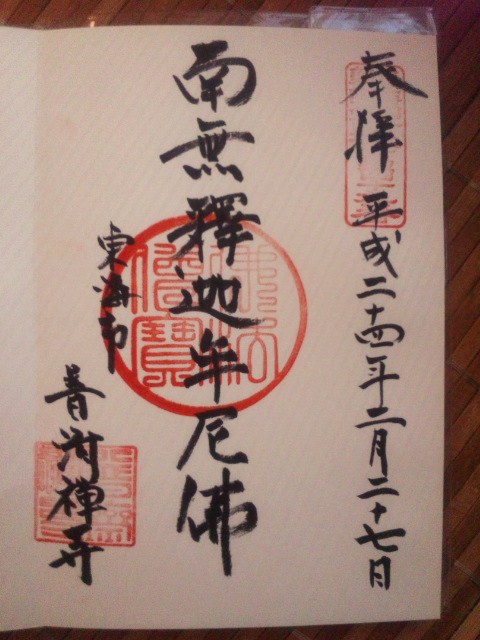 奉拝 平成二十四年二月二十七日
南無釋迦牟尼佛
佛法僧寳
東海市
普済禪寺